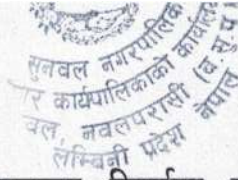 सुनवल नगरपालिका
नगर कार्यपालिकाको कार्यालय
सुनवल, नवलपरासी (ब.सु.प.)
लुम्बिनी प्रदेश नेपाल